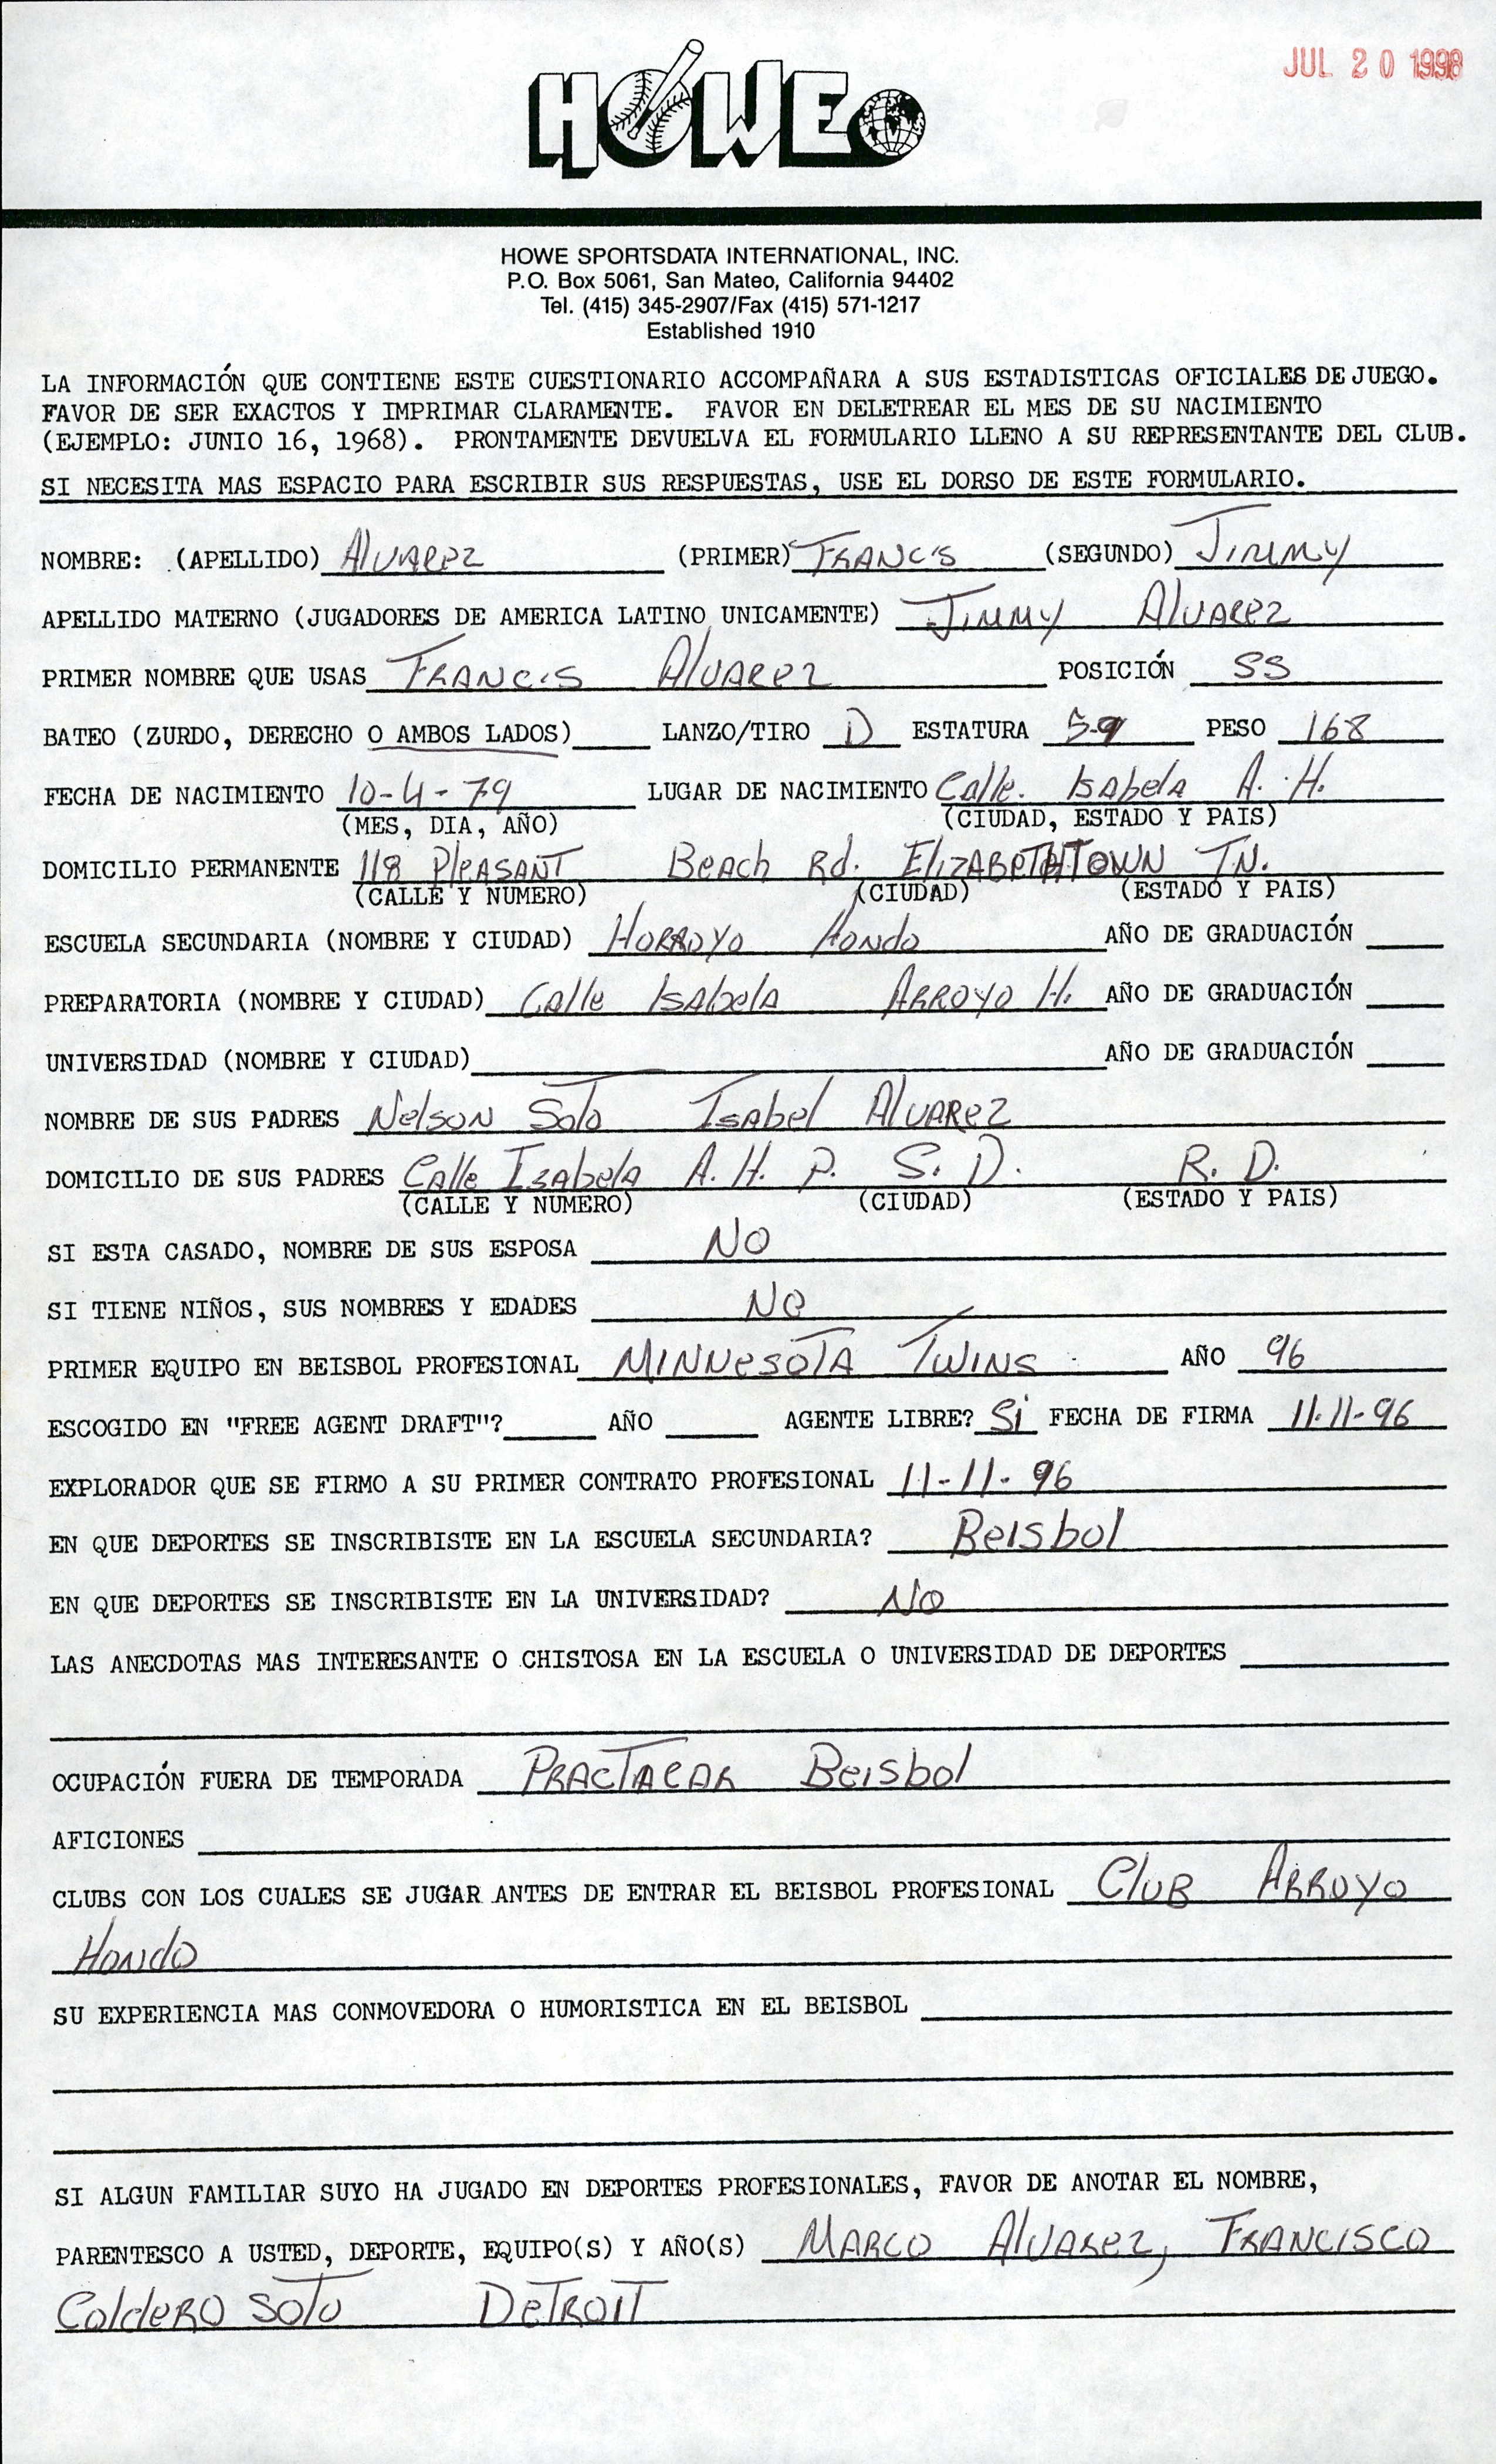 JUL 20 1998
HOWE
HOWE SPORTSDATA INTERNATIONAL, INC.
P.O. Box 5061, San Mateo, California 94402
Tel. (415) 345-2907/Fax (415) 571-1217
Established 1910
LA INFORMACIÓN QUE CONTIENE ESTE CUESTIONARIO ACCOMPAÑARA A SUS ESTADISTICAS OFICIALES DE JUEGO.
FAVOR DE SER EXACTOS Y IMPRIMAR CLARAMENTE. FAVOR EN DELETREAR EL MES DE SU NACIMIENTO
(EJEMPLO: JUNIO 16, 1968). PRONTAMENTE DEVUELVA EL FORMULARIO LLENO A SU REPRESENTANTE DEL CLUB.
SI NECESITA MAS ESPACIO PARA ESCRIBIR SUS RESPUESTAS, USE EL DORSO DE ESTE FORMULARIO.
NOMBRE: (APELLIDO) Alvarez (PRIMER) Francis (SEGUNDO) Jimmy
APELLIDO MATERNO (JUGADORES DE AMERICA LATINO UNICAMENTE) Jimmy Alvarez
PRIMER NOMBRE QUE USAS Francis Alvarez POSICIÓN SS
BATEO (ZURDO, DERECHO O AMBOS LADOS) LANZO/TIRO D ESTATURA 5-9 PESO 168
FECHA DE NACIMIENTO 10-4-79 LUGAR DE NACIMIENTO Calle. Isabela A. H.
(MES, DIA, AÑO) (CIUDAD, ESTADO Y PAIS)
DOMICILIO PERMANENTE 118 Pleasant Beach Rd. Elizabethtown TN.
(CALLE Y NUMERO) (CIUDAD) (ESTADO Y PAIS)
ESCUELA SECUNDARIA (NOMBRE Y CIUDAD) Horroyo Hondo AÑO DE GRADUACIÓN
PREPARATORIA (NOMBRE Y CIUDAD) Calle Isabela Arroyo H. AÑO DE GRADUACIÓN
UNIVERSIDAD (NOMBRE Y CIUDAD) AÑO DE GRADUACIÓN
NOMBRE DE SUS PADRES Nelson Soto Isabel Alvarez
DOMICILIO DE SUS PADRES Calle Izabela A. H. P. S. D. R. D.
(CALLE Y NUMERO) (CIUDAD) (ESTADO Y PAIS)
SI ESTA CASADO, NOMBRE DE SUS ESPOSA No
SI TIENE NIÑOS, SUS NOMBRES Y EDADES No
PRIMER EQUIPO EN BEISBOL PROFESIONAL Minnesota Twins AÑO 96
ESCOGIDO EN "FREE AGENT DRAFT"? AÑO AGENTE LIBRE? Si FECHA DE FIRMA 11-11-96
EXPLORADOR QUE SE FIRMO A SU PRIMER CONTRATO PROFESIONAL 11-11-96
EN QUE DEPORTES SE INSCRIBISTE EN LA ESCUELA SECUNDARIA? Beisbol
EN QUE DEPORTES SE INSCRIBISTE EN LA UNIVERSIDAD? No
LAS ANECDOTAS MAS INTERESANTE O CHISTOSA EN LA ESCUELA O UNIVERSIDAD DE DEPORTES
OCUPACIÓN FUERA DE TEMPORADA Practacar Beisbol
AFICIONES
CLUBS CON LOS CUALES SE JUGAR ANTES DE ENTRAR EL BEISBOL PROFESIONAL Club Arroyo
Hondo
SU EXPERIENCIA MAS CONMOVEDORA O HUMORISTICA EN EL BEISBOL
SI ALGUN FAMILIAR SUYO HA JUGADO EN DEPORTES PROFESIONALES, FAVOR DE ANOTAR EL NOMBRE,
PARENTESCO A USTED, DEPORTE, EQUIPO(S) Y AÑO(S) Marco Alvarez, Francisco
Coldero Soto Detroit